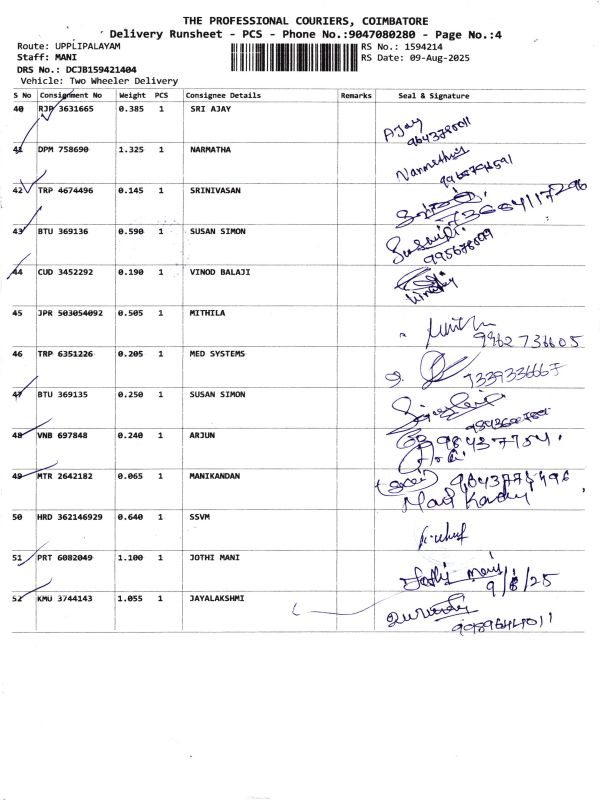 THE PROFESSIONAL COURIERS, COIMBATORE
Delivery Runsheet - PCS - Phone No.:9047080280 - Page No.:4
Route: UPPLIPALAYAM
RS No.: 1594214
Staff: MANI
RS Date: 09-Aug-2025
DRS No.: DCJB159421404
Vehicle: Two Wheeler Delivery
S No Consignment No Weight PCS Consignee Details Remarks Seal & Signature
40 RJP 3631665 0.385 1 SRI AJAY Ajay
41 DPM 758690 1.325 1 NARMATHA
42 TRP 4674496 0.145 1 SRINIVASAN
43 BTU 369136 0.590 1 SUSAN SIMON
44 CUD 3452292 0.190 1 VINOD BALAJI
45 JPR 503054092 0.505 1 MITHILA
9962736605
46 TRP 6351226 0.205 1 MED SYSTEMS
7339336667
47 BTU 369135 0.250 1 SUSAN SIMON
48 VNB 697848 0.240 1 ARJUN
49 MTR 2642182 0.065 1 MANIKANDAN
50 HRD 362146929 0.640 1 SSVM
51 PRT 6082049 1.100 1 JOTHI MANI Jothi Mani
9/8/25
52 KMU 3744143 1.055 1 JAYALAKSHMI